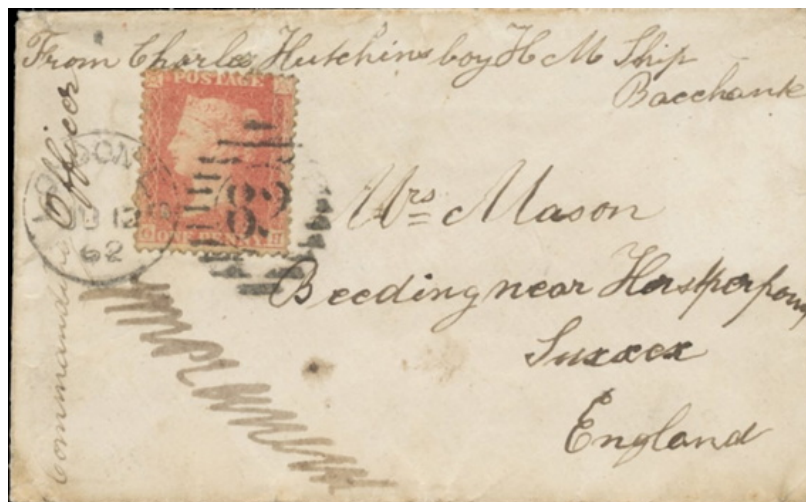 From Charles Hutchins boy H M Ship
Bacchante
Commanding Officer
POSTAGE
ONE PENNY
LONDON
12
62
82
Mrs Mason
Beeding near
Sussex
England